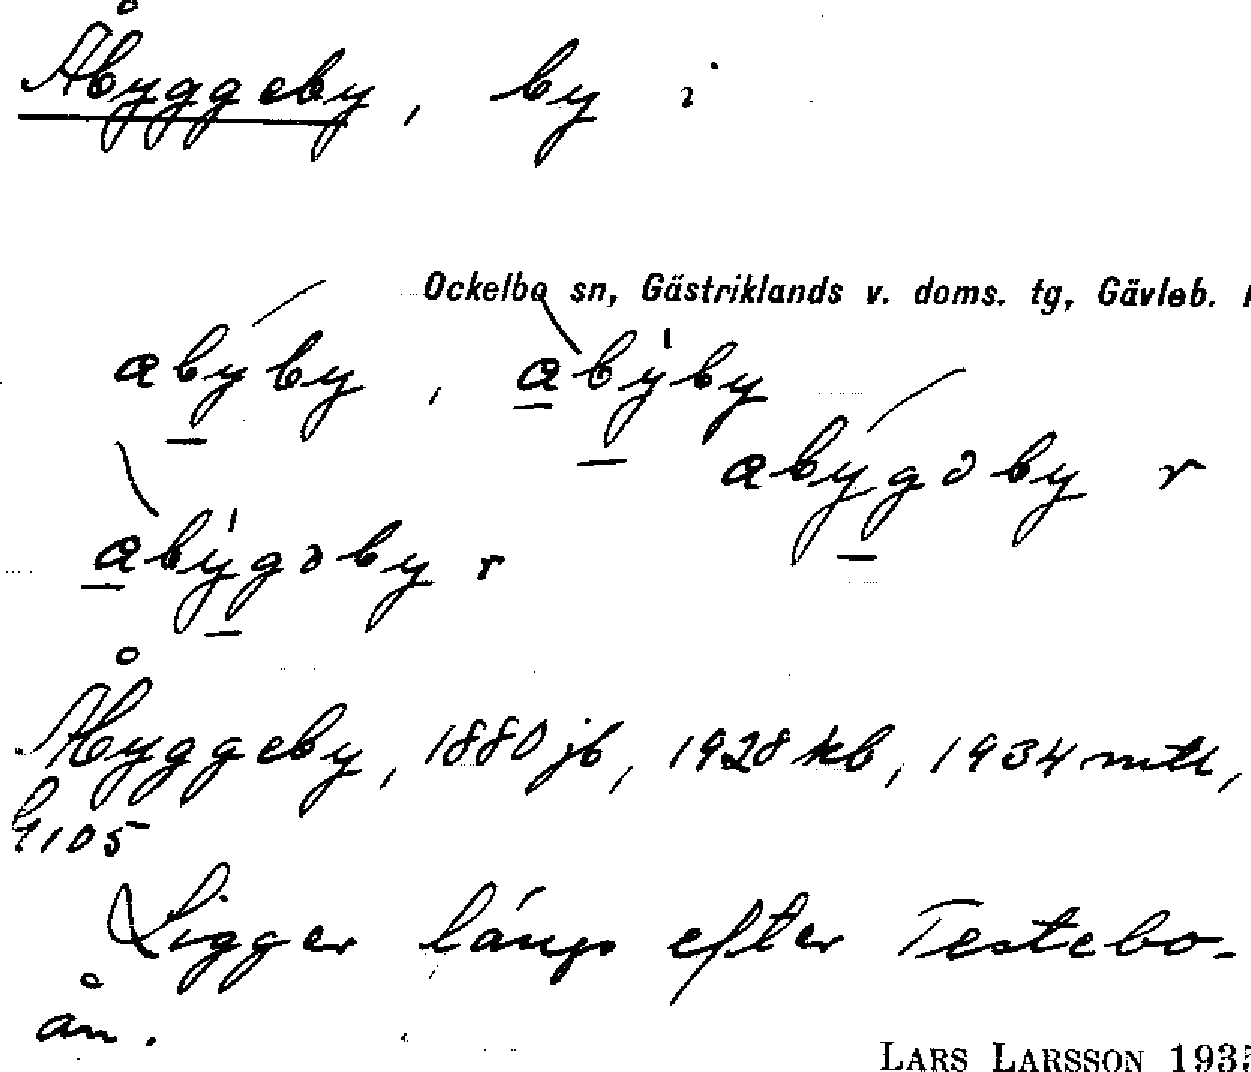 Åbyggeby, by i
Ockelbo sn, Gästriklands v. doms. tg, Gävleb.
abyby, abyby
abygəby r
abygəby r
Åbyggeby, 1880 jb, 1928 kb, 1934 mtl,
G105
Ligger längs efter Testebo-
ån.
LARS LARSSON 1935